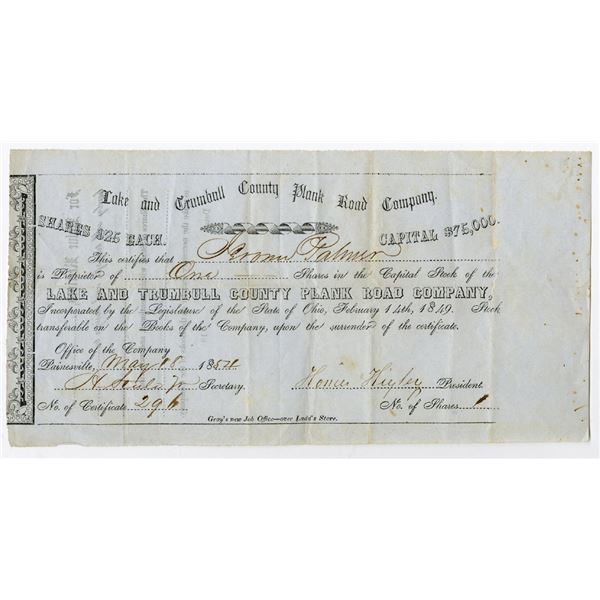 Lake and Trumbull County Plank Road Company.
SHARES $25 EACH. CAPITAL $75,000.
This certifies that Jerome Palmer
is Proprietor of One Shares in the Capital Stock of the
LAKE AND TRUMBULL COUNTY PLANK ROAD COMPANY,
Incorporated by the Legislature of the State of Ohio, February 14th, 1849. Stock
transferable on the Books of the Company, upon the surrender of the certificate.
Office of the Company
Painesville, May 18
Secretary. President.
No. of Certificate 296 No. of Shares 1
Gray's new Job Office—over Ladd's Store.